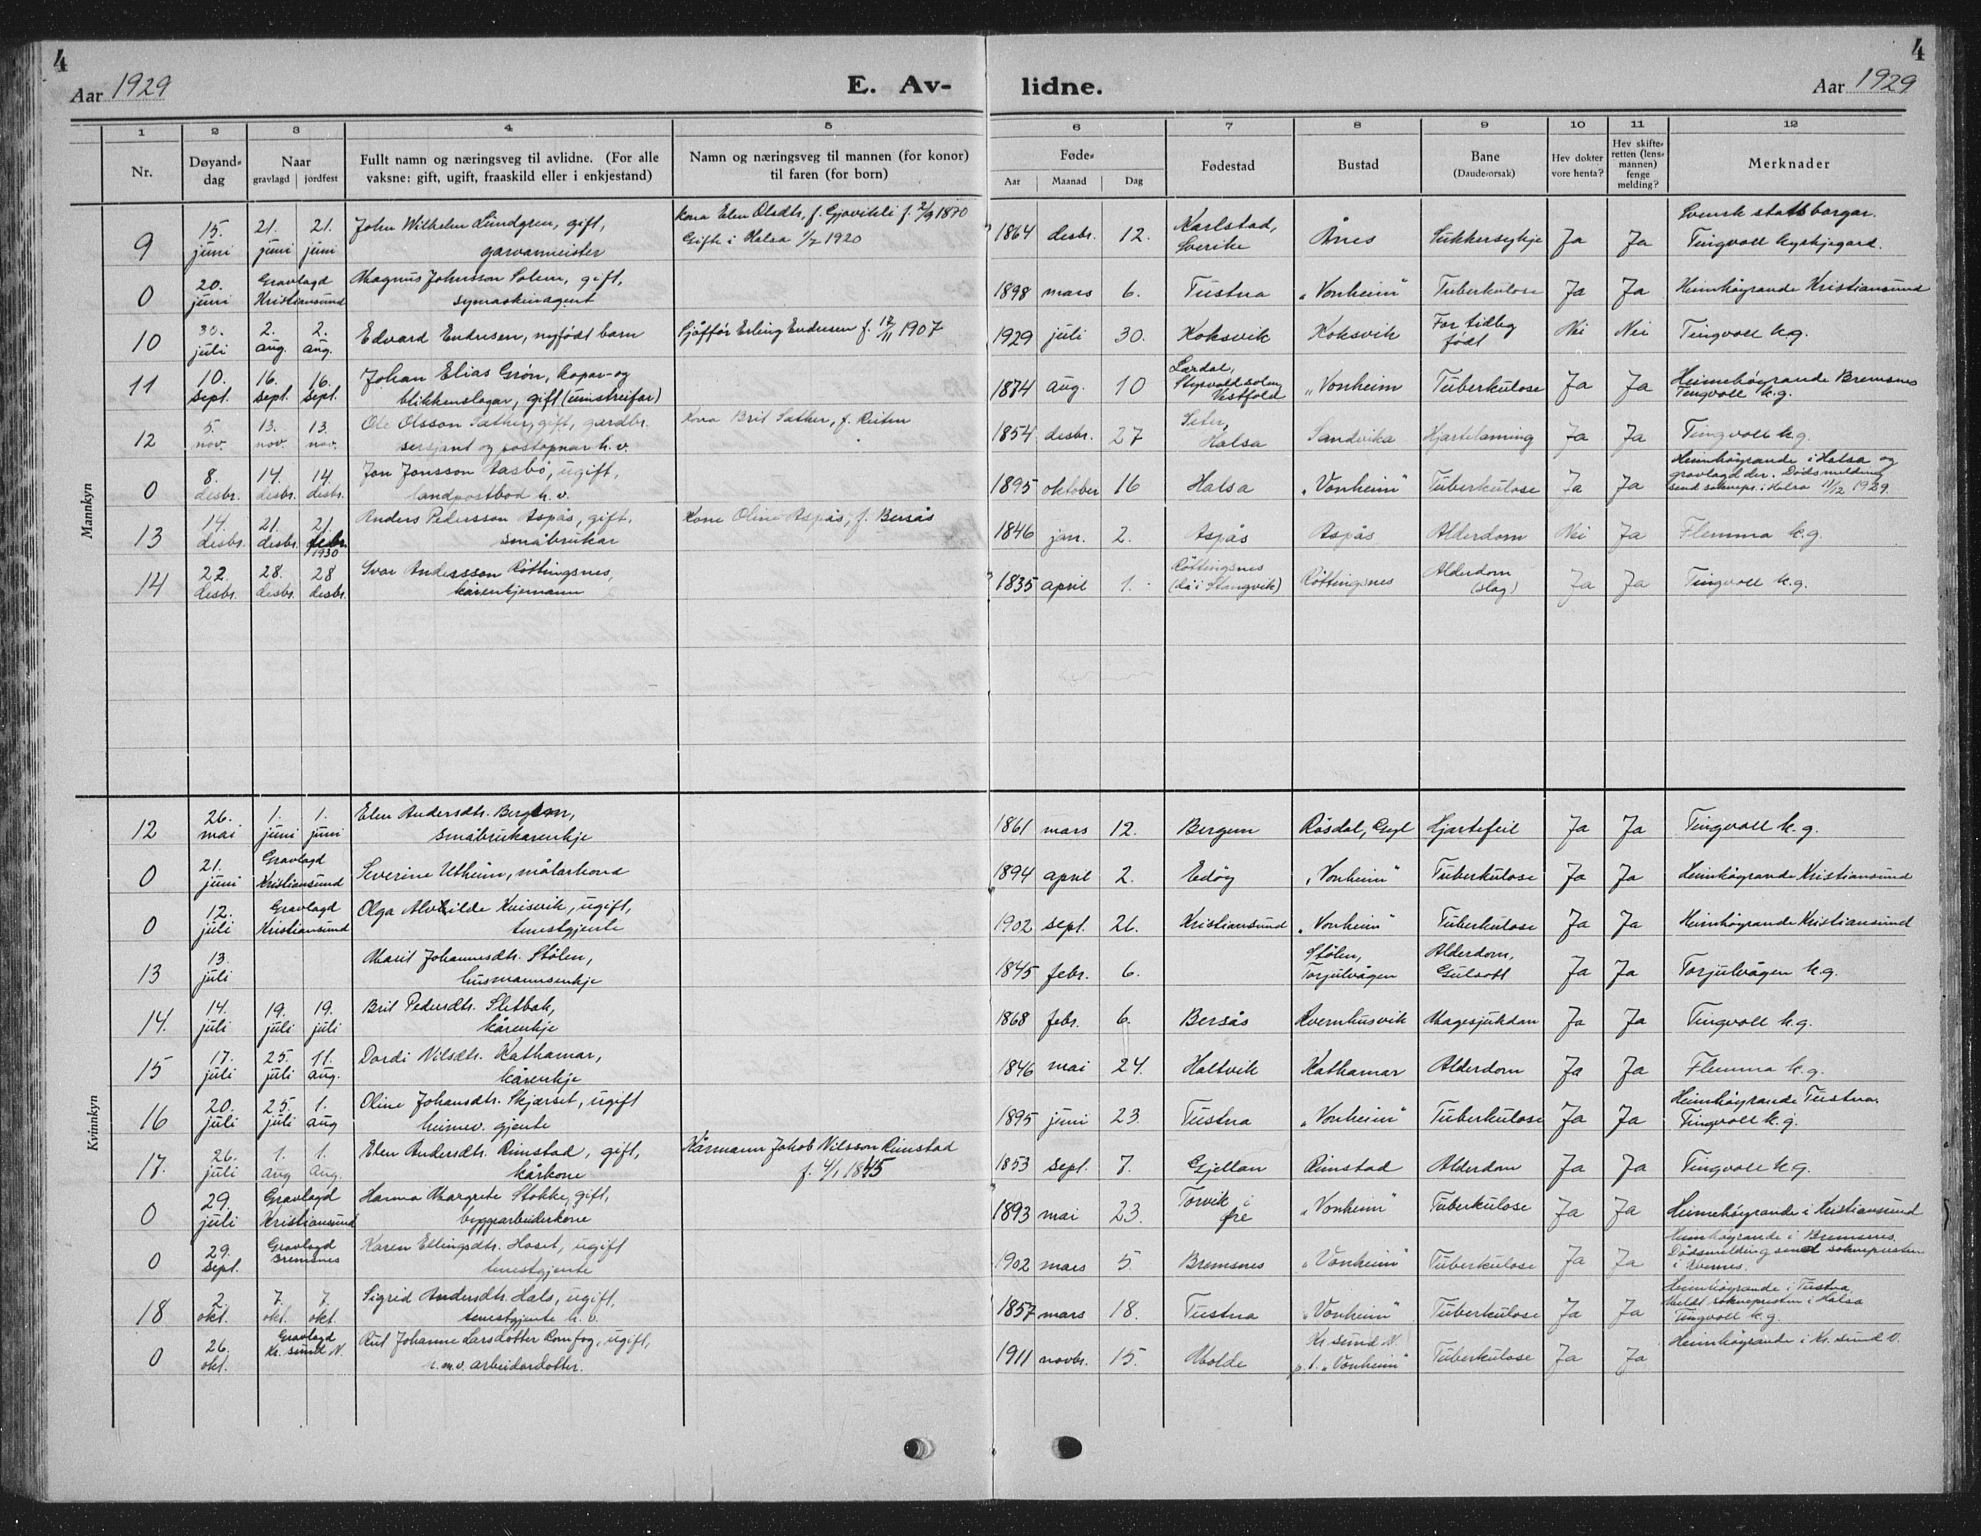 4
4
Aar 1929
E. Av-
lidne.
Aar 1929
1 2 3 4 5 6 7 8 9 10 11 12
Nr.
Døyand-
dag
Naar
gravlagd jordfest
Fullt namn og næringsveg til avlidne. (For alle
vaksne: gift, ugift, fraaskild eller i enkjestand)
Namn og næringsveg til mannen (for konor)
til faren (for born)
Føde-
Aar Maanad Dag
Fødestad
Bustad
Bane
(Daudeorsak)
Hev dokter
vore henta?
Hev skifte-
retten (lens-
mannen)
fenge
melding?
Merknader
Mannkyn
9 15. juni 21. juni 21. juni John Wilhelm Lundgren, gift,
garvarmeister
Kona Elen Olsdtr, f. Gjøvikli f. 2/9 1870
Gift i Halsa 1/7 1920
1864 desbr. 12. Karlstad,
Sverike
Ånes Sukkersykje Ja Ja Svensk statsborgar.
Tingvoll kyrkjegard.
0 20. juni Gravlagd
Kristiansund
Magnus Johnsson Solem, gift,
symaskinagent
1898 mars 6. Tustna "Vonheim" Tuberkulose Ja Ja Heimhøyrande Kristiansund
10 30. juli 2. aug. 2. aug. Edvard Endresen, nyfødt barn Sjåffør Erling Endresen f. 12/11 1907
1929 juli 30. Koksvik Koksvik For tidleg
født
Nei Nei Tingvoll k.g.
11 10. sept. 16. sept. 16. sept. Johan Elias Grøn, kopar- og
blikkenslagar, gift (umstreifar)
1874 aug. 10 Lardal,
Vestfold
"Vonheim Tuberkulose Ja Ja Heimehøyrande Bremsnes
Tingvoll k.g.
12 5. nov. 13. nov. 13. nov. Ole Olsson Sæther, gift, gardbr.
sersjant og postopnar h.v.
Kona Brit Sæther, f. Reiten
1854 desbr. 27 Seter,
Halsa
Sandvika Hjartelaming Ja Ja Tingvoll k.g.
0 8. desbr. 14. desbr. 14. desbr. Jon Jonsson Aasbø, ugift,
landpostbod h.v.
1895 oktober 16 Halsa "Vonheim" Tuberkulose Ja Ja Heimhøyrande i Halsa og
gravlagd der. Dødsmelding
send soknepr. i Halsa 11/12 1929.
13 14. desbr. 21. desbr. 21. febr. 1930 Anders Pedersson Aspås, gift,
småbrukar
Kone Oline Aspås, f. Bersås
1846 jan. 2. Aspås Aspås Alderdom Nei Ja Flemma k.g.
14 22. desbr. 28. desbr. 28 desbr. Ivar Andersson Røttingsnes,
kårenkjemann
1835 april 1. Røttingsnes
(då i Stangvik)
Røttingsnes Alderdom
(slag)
Ja Ja Tingvoll k.g.
Kvinnkyn
12 26. mai 1. juni 1. juni Elen Andersdtr. Bergem,
småbrukarenkje
1861 mars 12. Bergem Røsdal, Gyl Hjartefeil Ja Ja Tingvoll k.g.
0 21. juni Gravlagd
Kristiansund
Severine Utheim, målarkona
1894 april 2. Edøy "Vonheim" Tuberkulose Ja Ja Heimhøyrande Kristiansund
0 12. juli Gravlagd
Kristiansund
Olga Alvhilde Kvisvik, ugift,
tenestgjente
1902 sept. 26. Kristiansund "Vonheim" Tuberkulose Ja Ja Heimhøyrande Kristiansund
13 13. juli Marit Johannesdtr. Stølen,
husmannsenkje
1845 febr. 6. Stølen,
Torjulvågen
Alderdom,
Gulsott
Ja Ja Torjulvågen k.g.
14. 14. juli 19. juli 19. juli Brit Pedersdtr. Sletbak,
kårenkje
1868 febr. 6. Bersås Kvernhusvik Magesjukdom Ja Ja Tingvoll k.g.
15 17. juli 25. juli 11. aug. Dordi Nilsdtr. Kathamar,
kårenkje
1846 mai 24. Holtvik Kathamar Alderdom Ja Ja Flemma k.g.
16 20. juli 25. juli 1. aug Oline Johansdtr. Skjærset, ugift
heimev. gjente
1895 juni 23. Tustna "Vonheim" Tuberkulose Ja Ja Heimhøyrande Tustna.
Tingvoll k.g.
17. 26. juli 1. aug 1. aug. Elen Andersdtr. Rimstad, gift,
kårkone
Kårmann Jakob Nilsson Rimstad
f. 4/1 1845
1853 sept. 7. Gjellan Rimstad Alderdom Ja Ja Tingvoll k.g.
0 29. juli Gravlagd
Kristiansund
Hanna Margrete Stokke, gift,
byggarbeiderkone
1893 mai 23. Torvik i
Øre
"Vonheim" Tuberkulose Ja Ja Heimehøyrande i Kristiansund
0 29. sept. Gravlagd
Bremsnes
Karen Ellingsdtr. Hoset, ugift
tenestgjente
1902 mars 5. Bremsnes "Vonheim" Tuberkulose Ja Ja Heimhøyrande i Bremsnes.
Dødsmelding sendt soknepresten
i Kvernes.
18 2. okt. 7. okt. 7. okt. Sigrid Andersdtr. Hals, ugift,
tenestgjente h.v.
1857 mars 18. Tustna "Vonheim" Tuberkulose Ja Ja Heimhøyrande i Tustna.
Meldt soknepresten i Halsa
Tingvoll k.g.
0 26. okt. Gravlagd
Kr.sund N.
Rut Johanne Larsdotter Romfog, ugift,
h.m.v. arbeidardotter.
1911 novbr. 15. Molde Kr.sund N.
p.t. "Vonheim"
Tuberkulose Ja Ja Heimhøyrande i Kr.sund N.